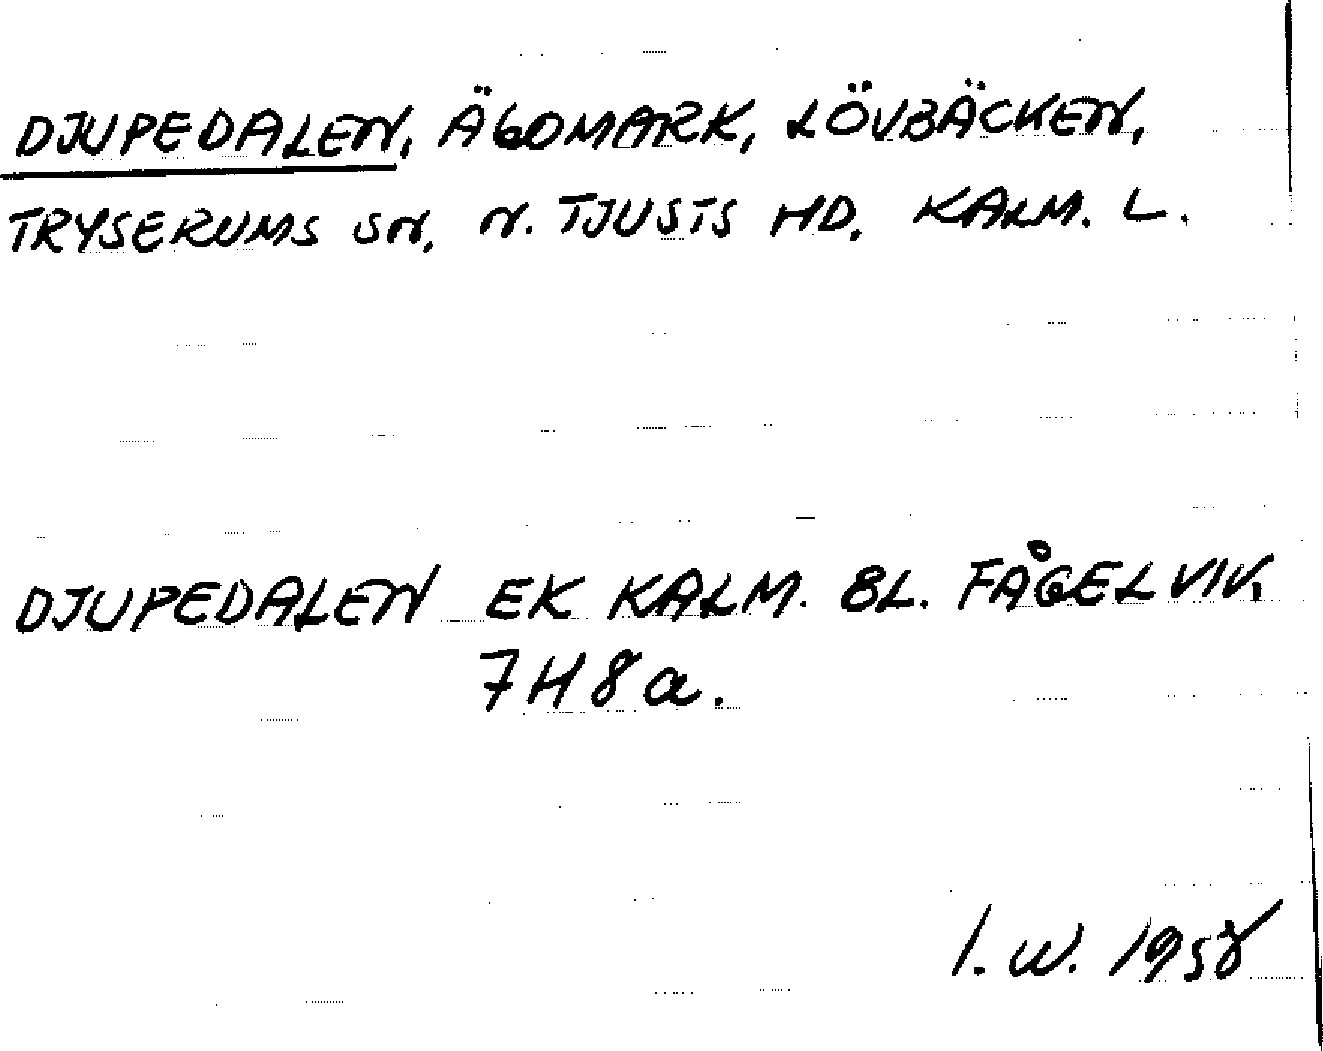 DJUPEDALEN, ÄGOMARK, LÖVBÄCKEN,
TRYSERUMS SN, N. TJUSTS HD, KALM. L.
DJUPEDALEN EK KALM. BL. FÅGELVIK,
7H8a.
I. W. 1958